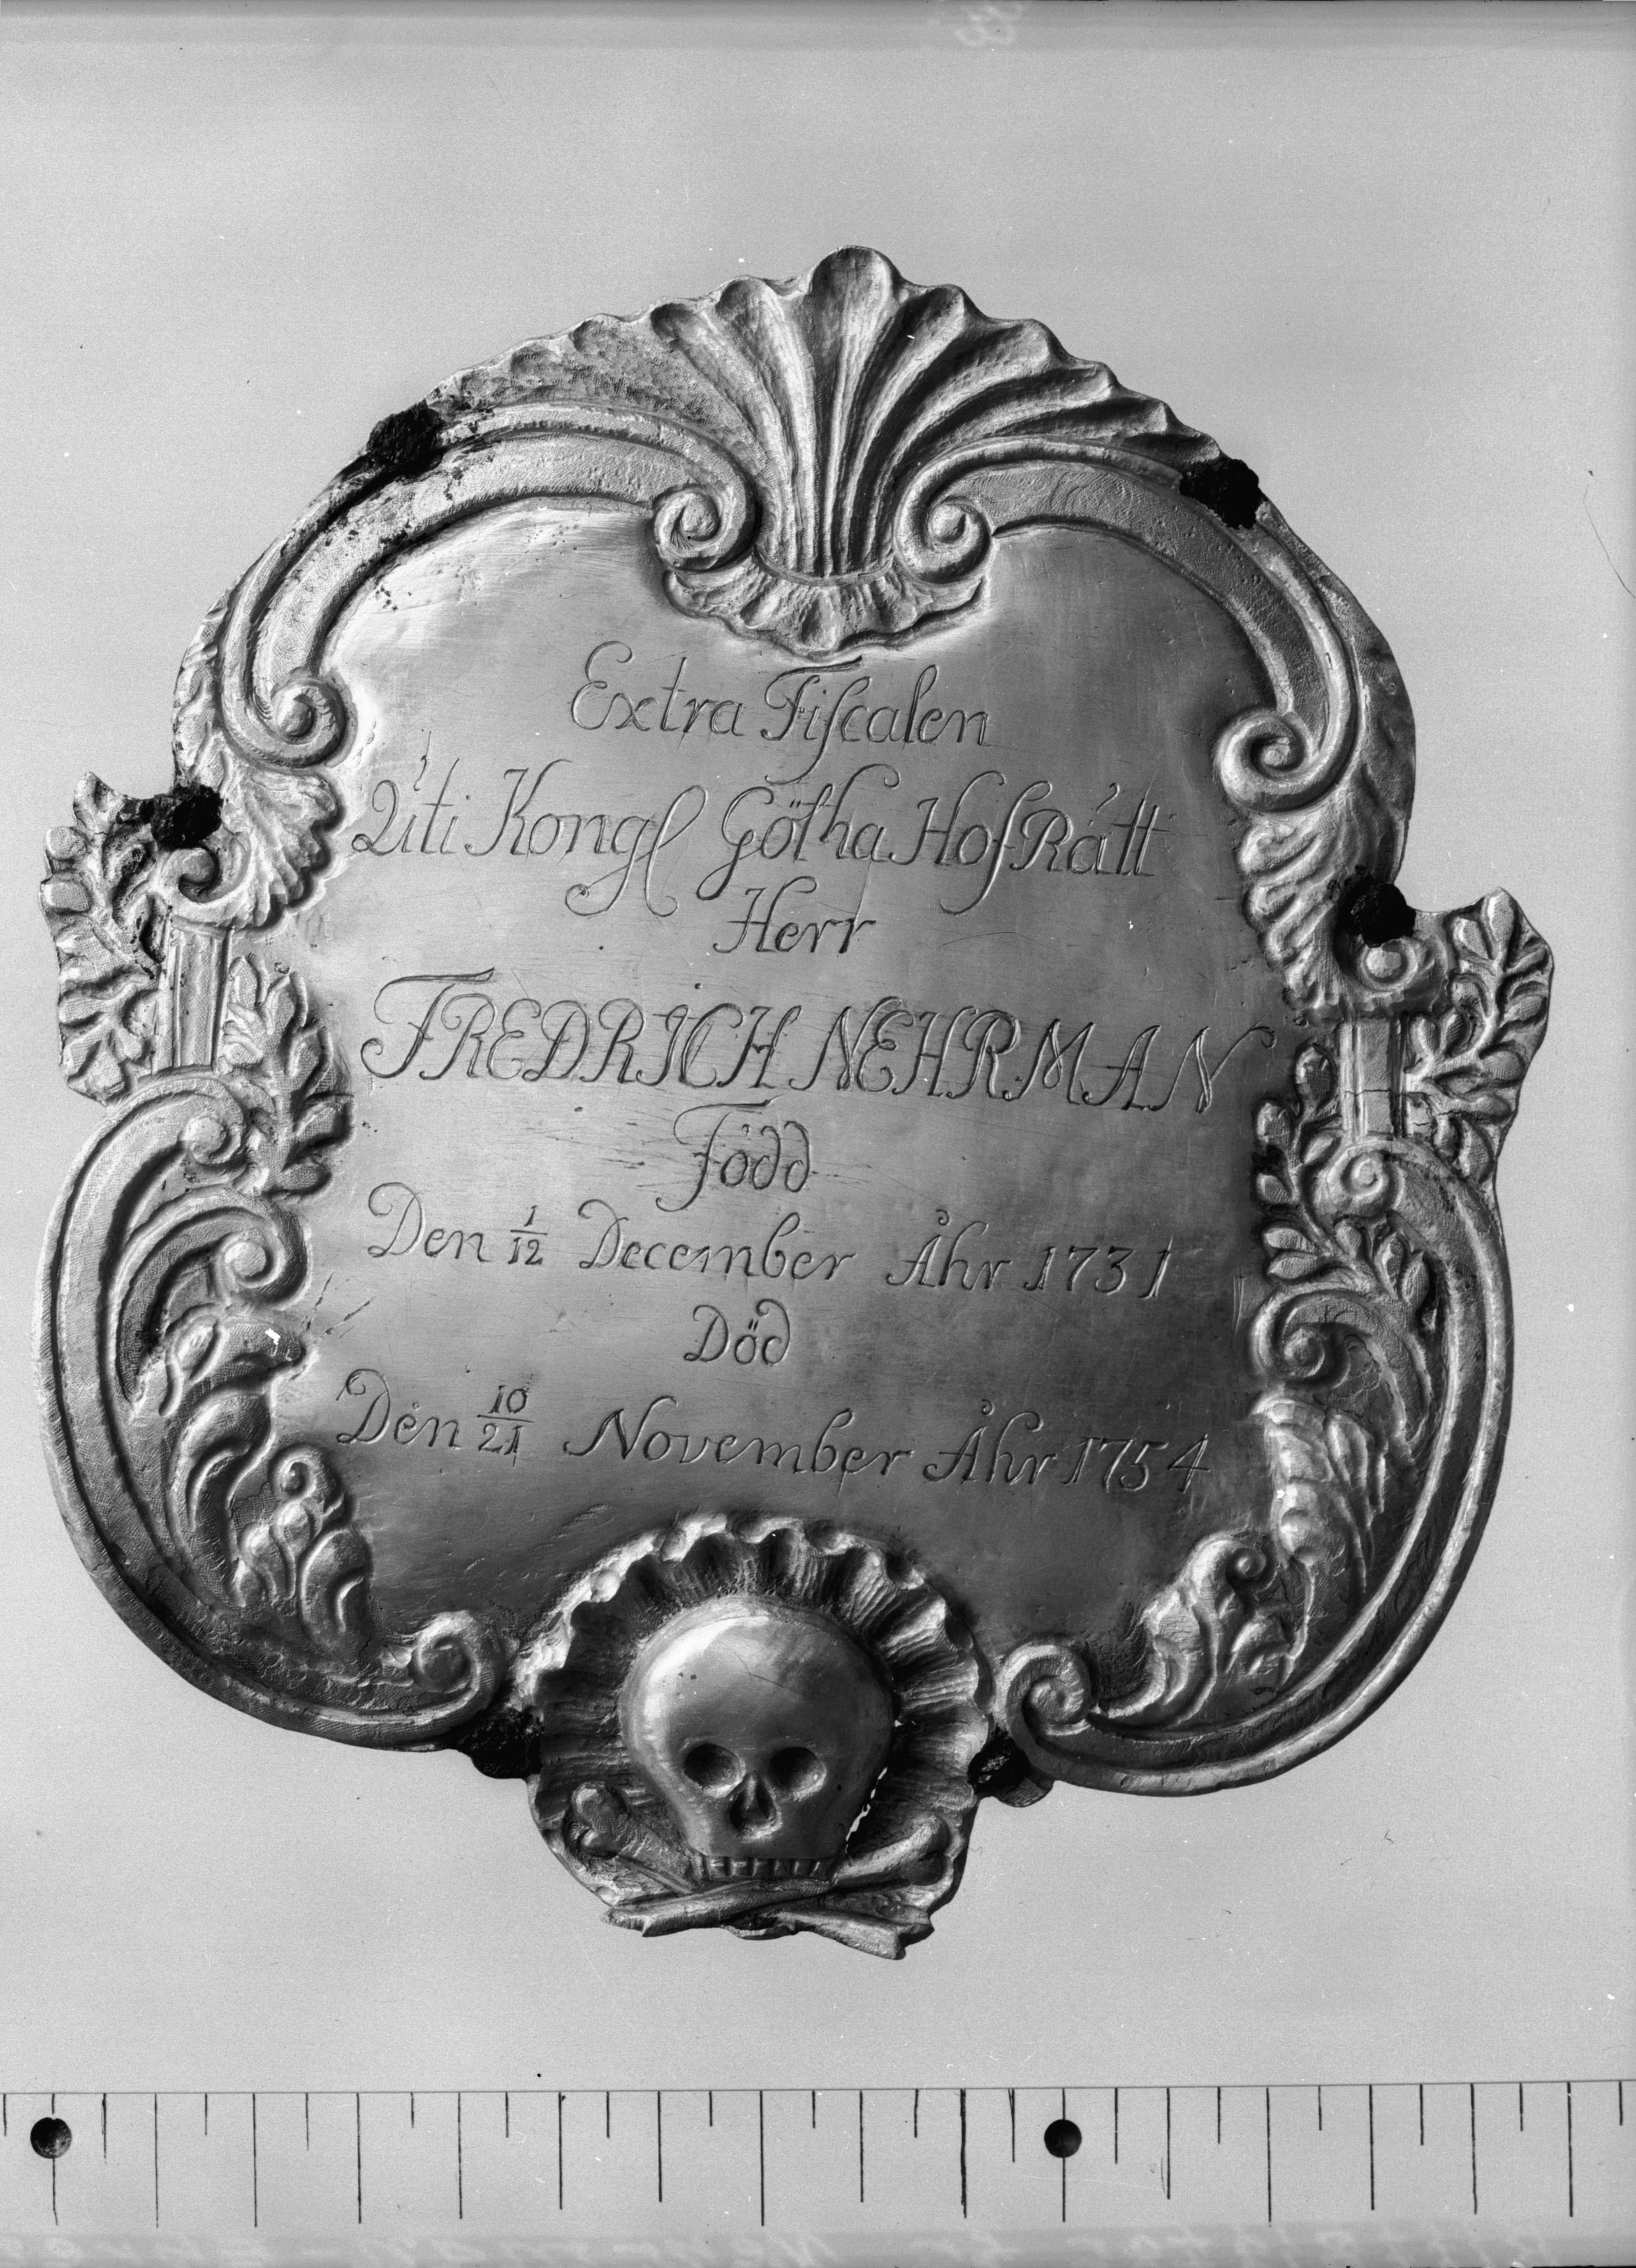 Extra Fiſcalen
Uti Kongl Götha HofRätt
Herr
FREDRICH NEHRMAN
Född
Den 1/12 December Åhr 1731
Död
Den 10/21 November Åhr 1754